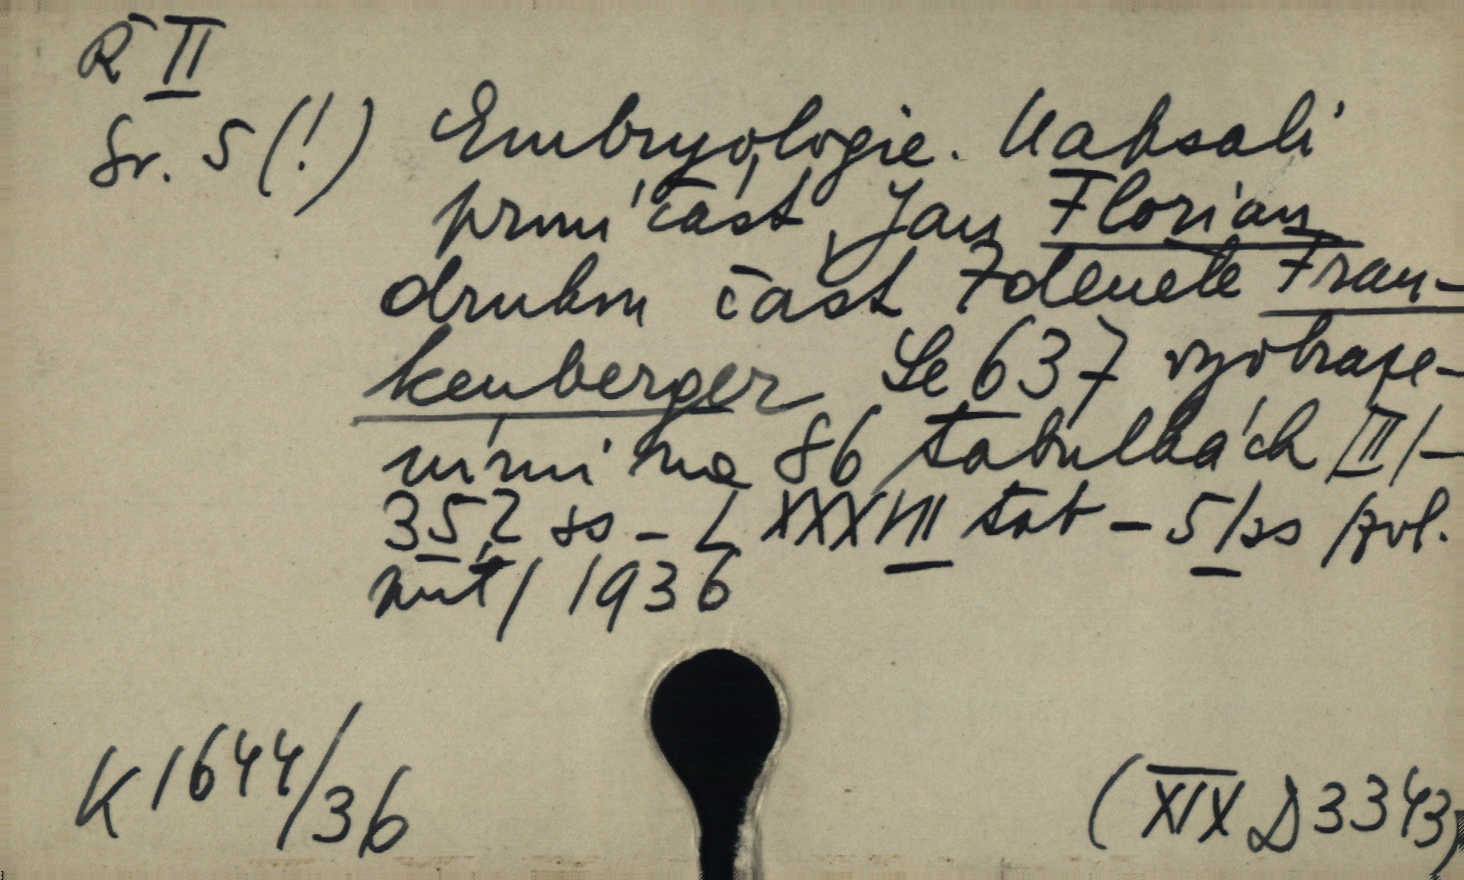 Ř II
Sv. 5 (!) Embryologie. Napsali
první část, Jan Florian
druhou část Zdeněk Fran-
kenberger Se 637 vyobraze-
ními na 86 tabulkách III/-
352 ss - L XXXVIII tab - 5/ss /zvl.
1936
K 1644/36
(XIX D 3343)